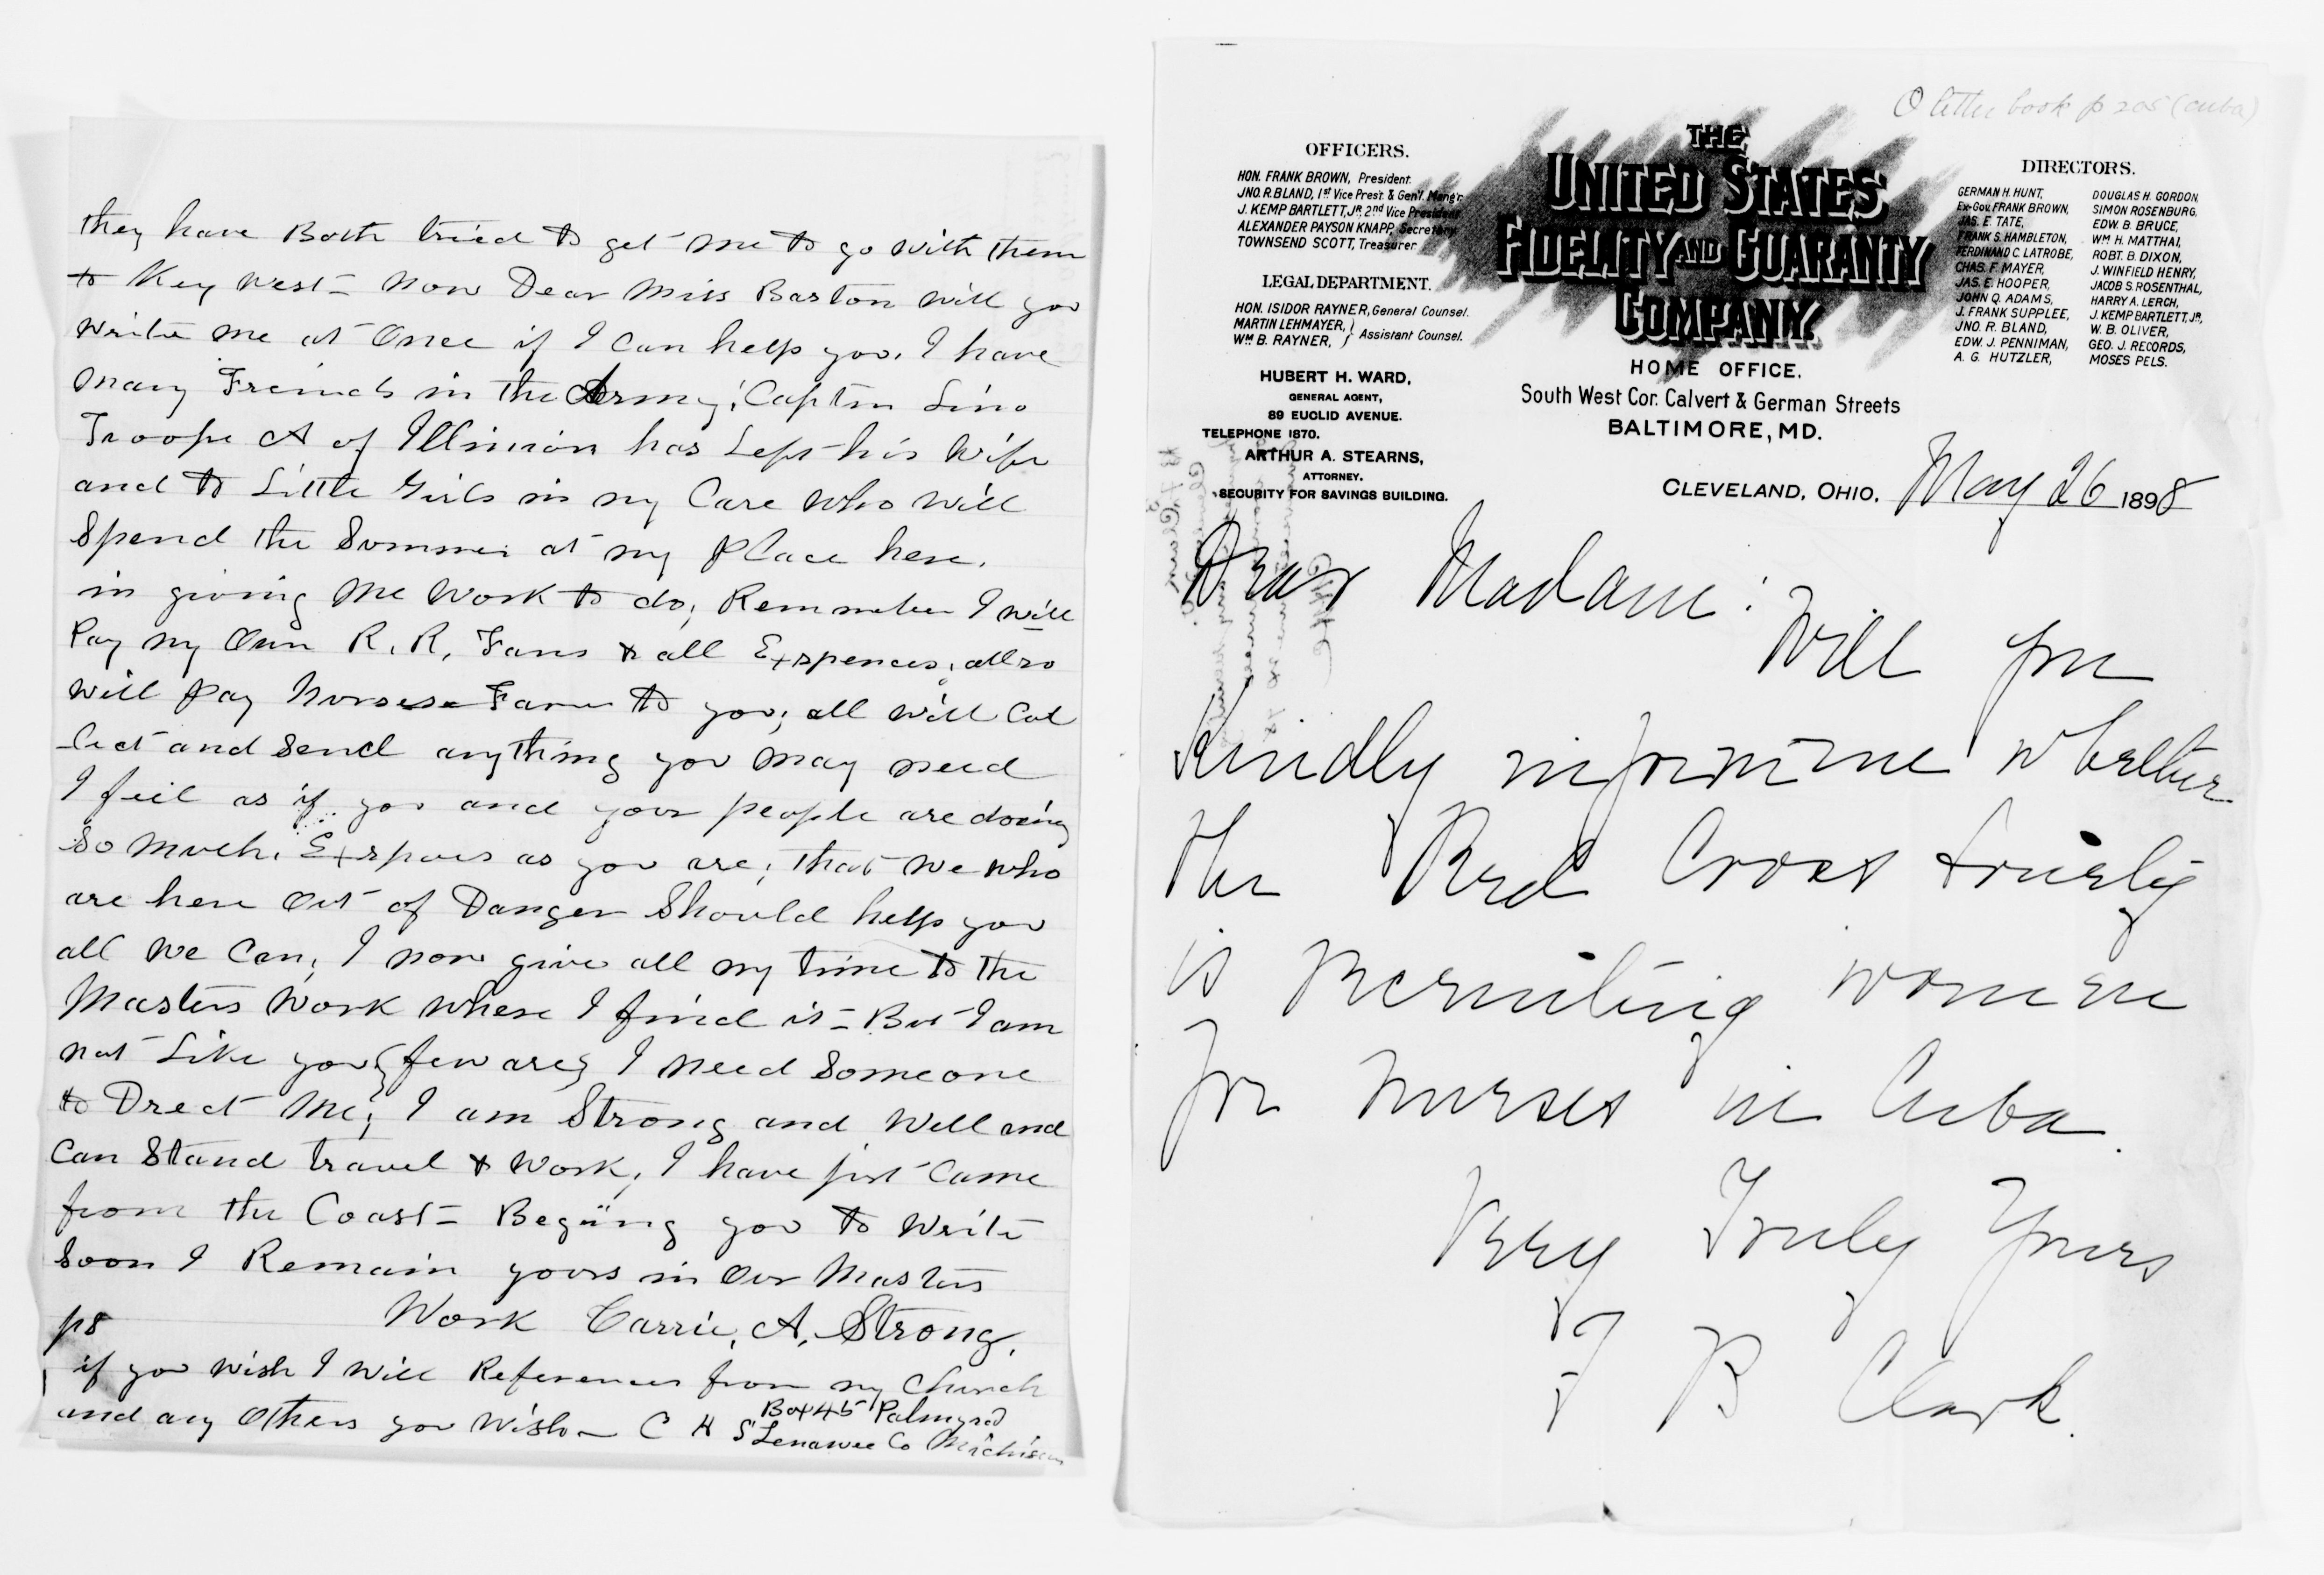 they have Both tried to get me to go with them
to Key West - Now Dear Miss Barton will you
write me at Once if I Can help you. I have
many Freinds in the Army; Captin
Troope A of has Left his Wife
and to Little Girls in my Care Who Will
Spend the Summer at my Place here.
in giving Me Work to do; Remmber I will
Pay my Own R. R. Fare & all Exspences, allso
Will Pay Nurses Fare to you; all will Col
-lect and Send anything you may need
I feel as if you and your people are doeing
So Much. as you are; that we who
are here Out of Danger Should help you
all We Can; I now give all my time to the
Masters Work where I find it - But I am
not Like you (few are) I Need Someone
to Drect Me; I am Strong and Well and
Can Stand travel & Work; I have just Came
from the Coast - Beging you to Write
Soon I Remain yours in Our Masters
Work Carrie, A, Strong.
ps
if you wish I will References from my Church
and any Others you Wish - C H S
Box 45 Palmyra
Lenawee Co Michigan
O letter book p 205 (Cuba)
THE
UNITED STATES
FIDELITY AND GUARANTY
COMPANY.
HOME OFFICE.
South West Cor. Calvert & German Streets
BALTIMORE, MD.
OFFICERS.
HON. FRANK BROWN, President.
JNO. R. BLAND, 1st Vice Prest. & Gen'l. Mang'r.
J. KEMP BARTLETT, JR. 2nd Vice President
ALEXANDER PAYSON KNAPP, Secretary
TOWNSEND SCOTT, Treasurer
LEGAL DEPARTMENT.
HON. ISIDOR RAYNER, General Counsel.
MARTIN LEHMAYER, } Assistant Counsel.
WM B. RAYNER,
HUBERT H. WARD,
GENERAL AGENT,
89 EUCLID AVENUE.
TELEPHONE 1870.
ARTHUR A. STEARNS,
ATTORNEY.
SECURITY FOR SAVINGS BUILDING.
DIRECTORS.
GERMAN H. HUNT,
Ex-Gov. FRANK BROWN,
JAS. E. TATE,
FRANK S. HAMBLETON,
FERDINAND C. LATROBE,
CHAS. F. MAYER,
JAS. E. HOOPER,
JOHN Q. ADAMS,
J. FRANK SUPPLEE,
JNO. R. BLAND,
EDW. J. PENNIMAN,
A. G. HUTZLER,
DOUGLAS H. GORDON,
SIMON ROSENBURG,
EDW. B. BRUCE,
WM H. MATTHAI,
ROBT. B. DIXON,
J. WINFIELD HENRY,
JACOB S. ROSENTHAL,
HARRY A. LERCH,
J. KEMP BARTLETT, JR,
W. B. OLIVER,
GEO. J. RECORDS,
MOSES PELS.
CLEVELAND, OHIO, May 26 1898
Dear Madam:
Will you
Kindly inform me whether
the Red Cross Society
is recruiting women
for nurses in Cuba.
Very Truly Yours
F B Clark.